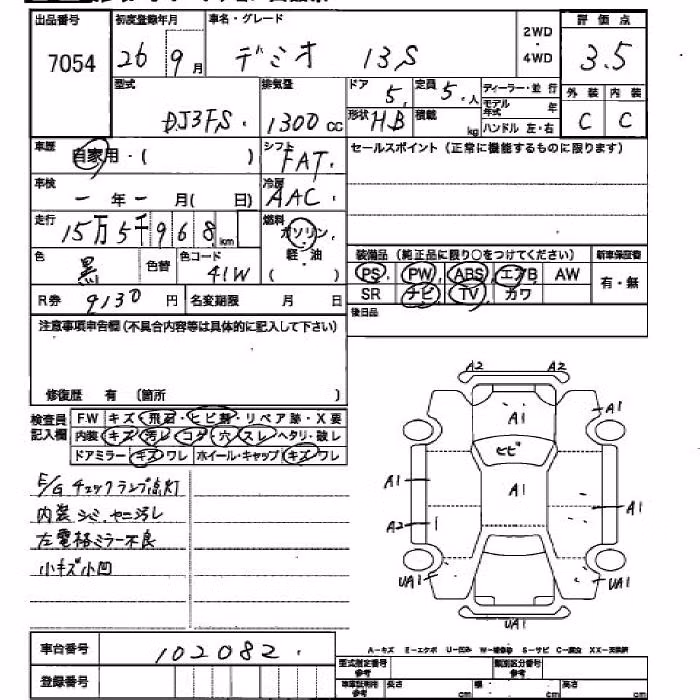 出品番号 初度登録年月 車名・グレード 2WD・4WD 評価点
7054 26 9月 デミオ 13S 3.5
型式 排気量 ドア 定員 ディーラー・並行 外装 内装
DJ3FS 1300cc 5 5人 モデル年式 年 C C
形状 HB 積載 kg ハンドル 左・右
車歴 自家用・( ) シフト FAT セールスポイント(正常に機能するものに限ります)
車検 ー年ー月( 日) 冷房 AAC
走行 15万5千968km 燃料 ガソリン
軽・油
( )
色 黒 色替 色コード 41W
装備品(純正品に限り○をつけてください) 新車保証書
PS PW ABS エアB AW 有・無
SR ナビ TV カワ
R券 9130円 名変期限 月 日
後日品
注意事項申告欄(不具合内容等は具体的に記入して下さい)
修復歴 有 〔箇所 〕
検査員記入欄 F.W キズ・飛石・ヒビ割・リペア跡・X要
内装 キズ 汚レ コゲ 穴 スレ ヘタリ・破レ
ドアミラー キズ ワレ ホイール・キャップ キズ ワレ
E/Gチェックランプ点灯
内装シミ、ヤニ汚レ
左電格ミラー不良
小キズ小凹
A2 A2
A1 A1
ヒビ
A1 A1
A1
A2
UA1 UA1
UA1
車台番号 102082
A-キズ E-エクボ U-凹ミ W-補修跡 S-サビ C-腐食 XX-交換済
登録番号
型式指定番号 参考 類別区分番号 参考
車車証明用 参考 長さ cm 幅 cm 高さ cm